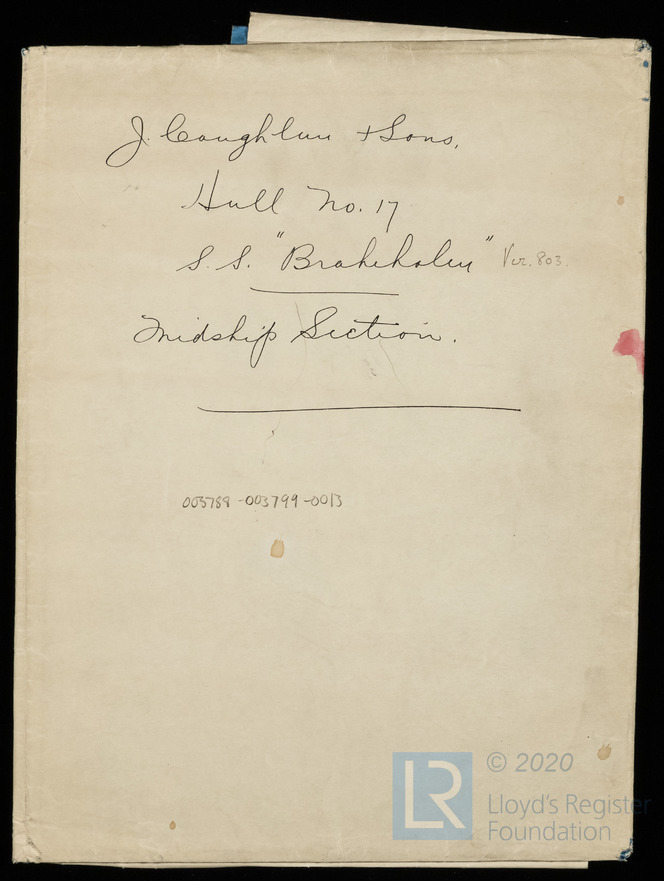 J. Coughlan & Sons,
Hull No. 17
S.S. "Braheholm" Ver. 803.
Midship Section.
003788-003799-0013
LR
© 2020
Lloyd's Register
Foundation